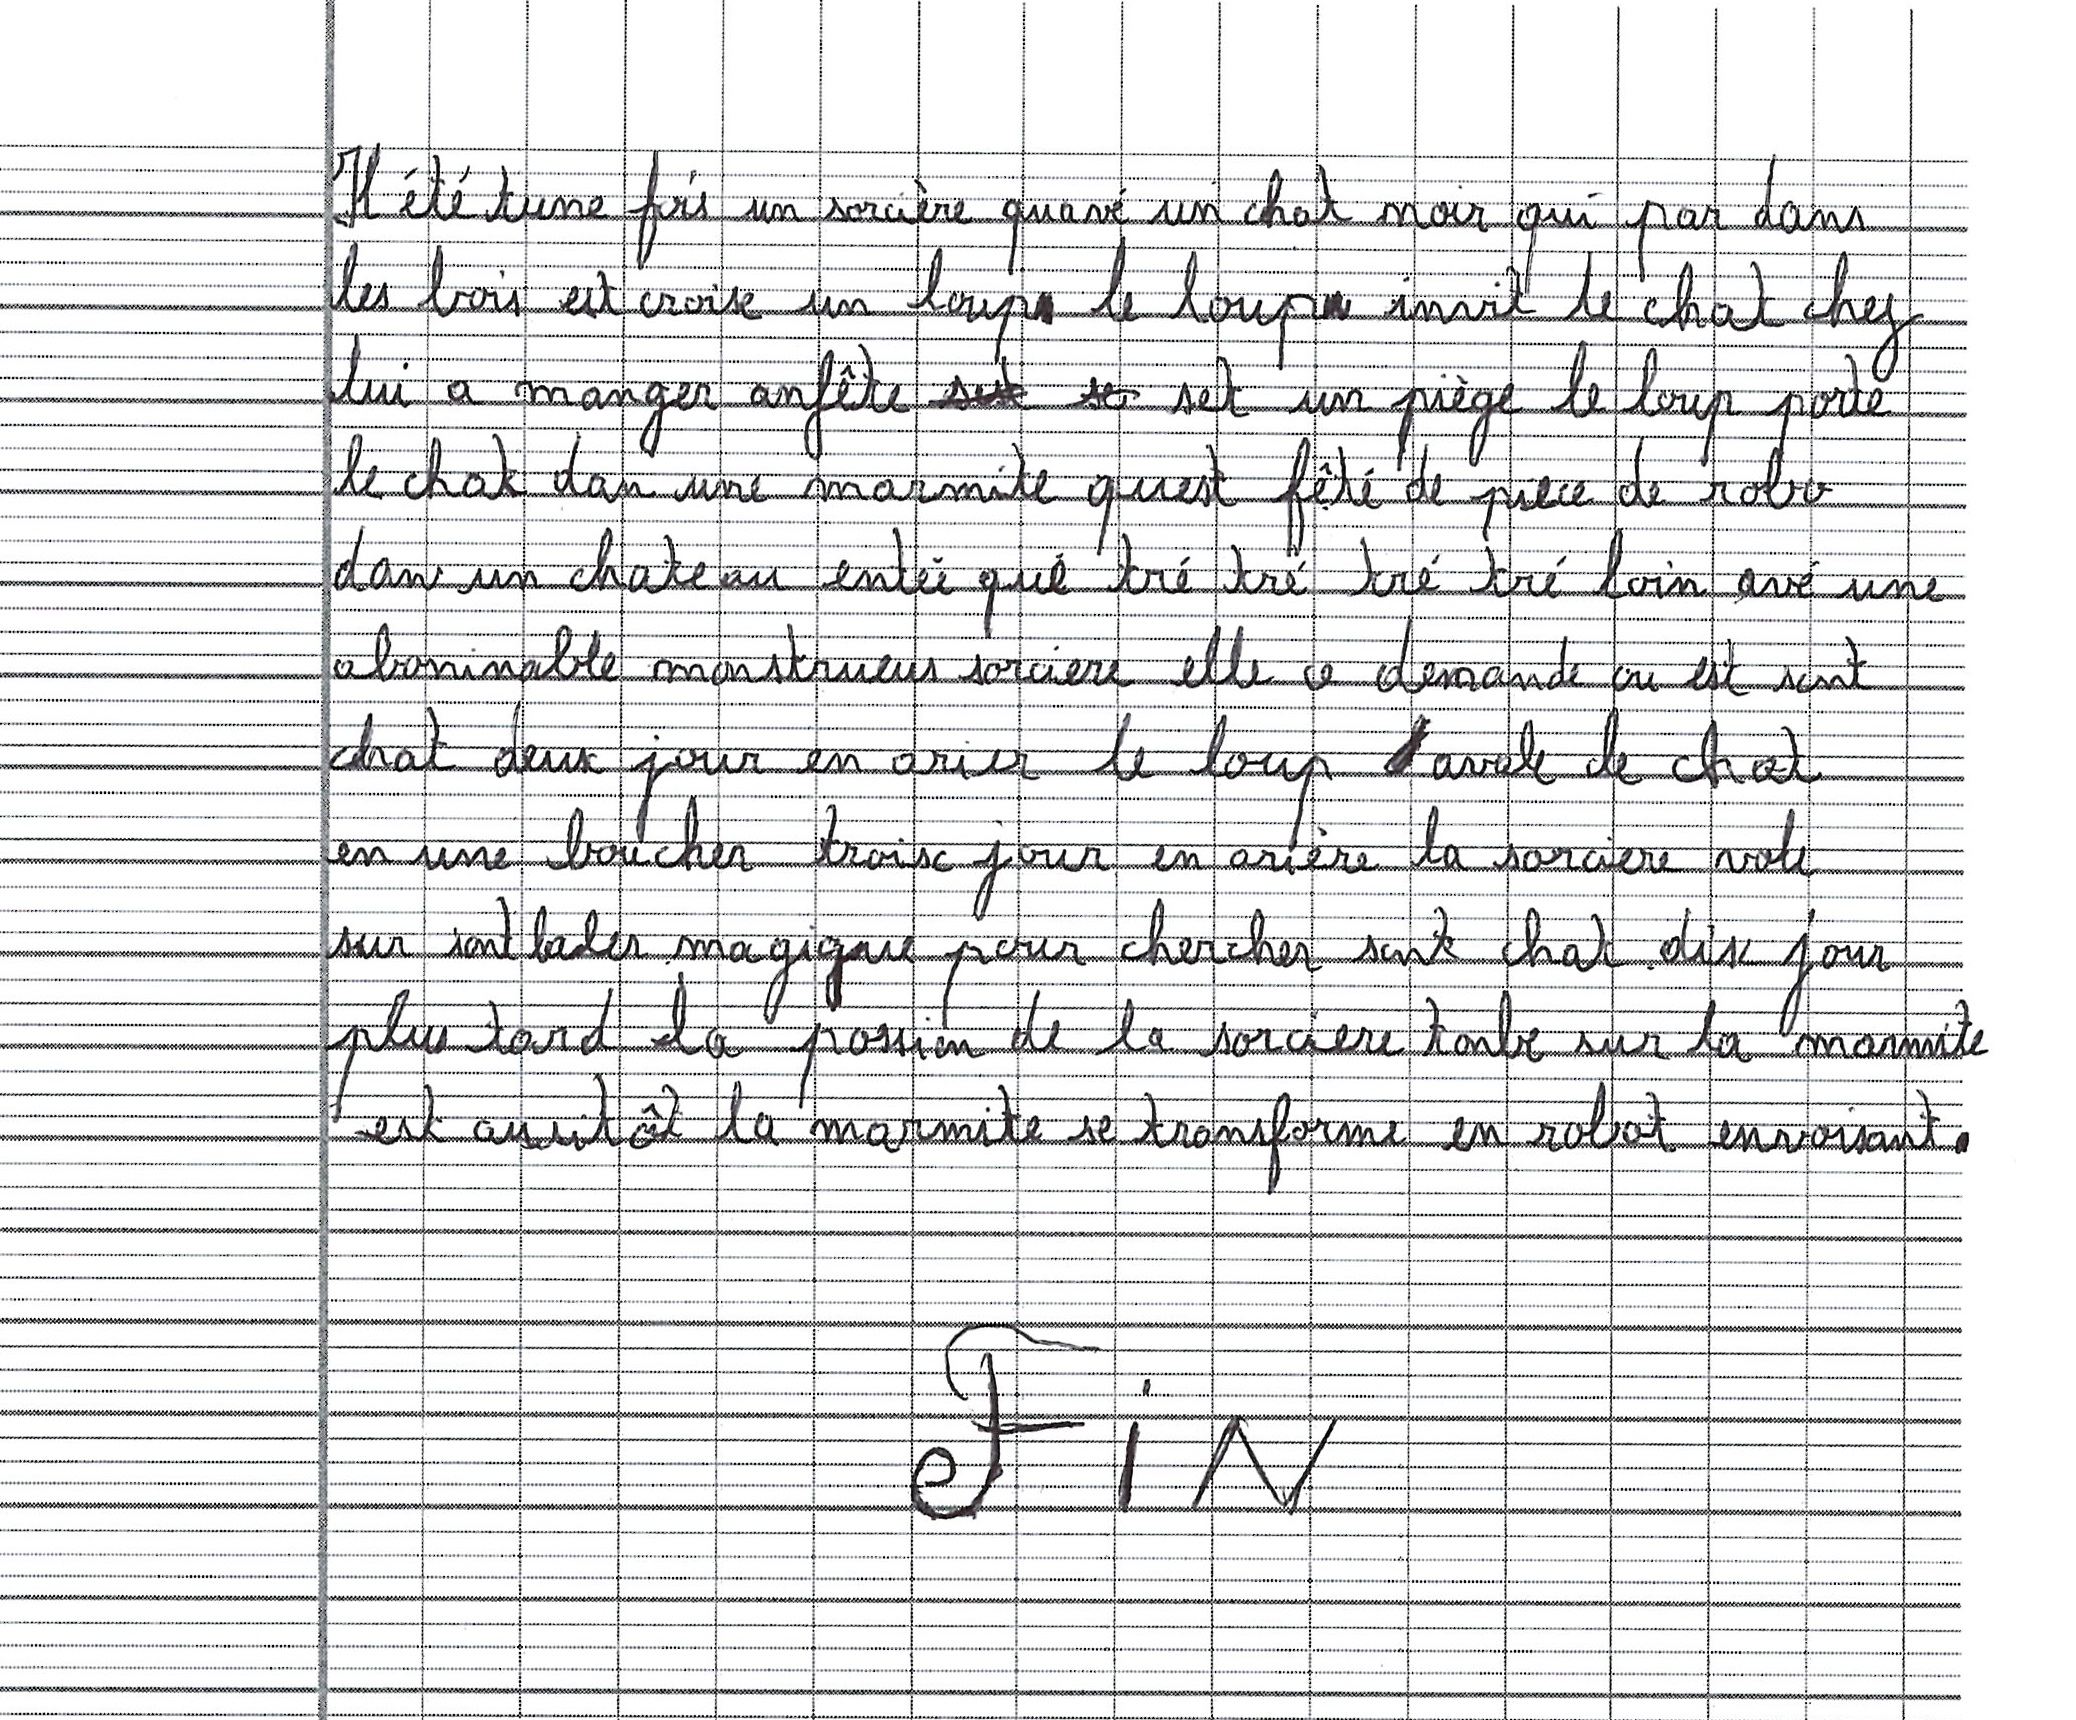 Il été tune fois un sorcière quavé un chat noir qui par dans
les bois est croise un loup le loup invit le chat chez
lui a manger anfête set un piège le loup porte
le chat dan une marmite quest fêté de piece de robo
dan un chateau entée qué tré tré tré tré loin avé une
abominable monstrueus sorciere elle ce demande ou est sont
chat deux jour en arier le loup avale le chat
en une boucher troisc jour en arière la sorciere vole
sur sont baler magique pour chercher sont chat dix jour
plus tard la possion de la sorciere tonbe sur la marmite
est ausitôt la marmite se transforme en robot envoisant.
FiN